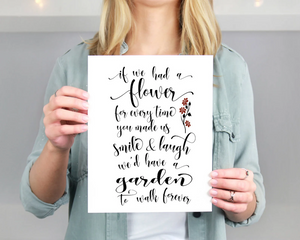 if we had a
flower
for every time
you made us
smile & laugh
we'd have a
garden
to walk forever